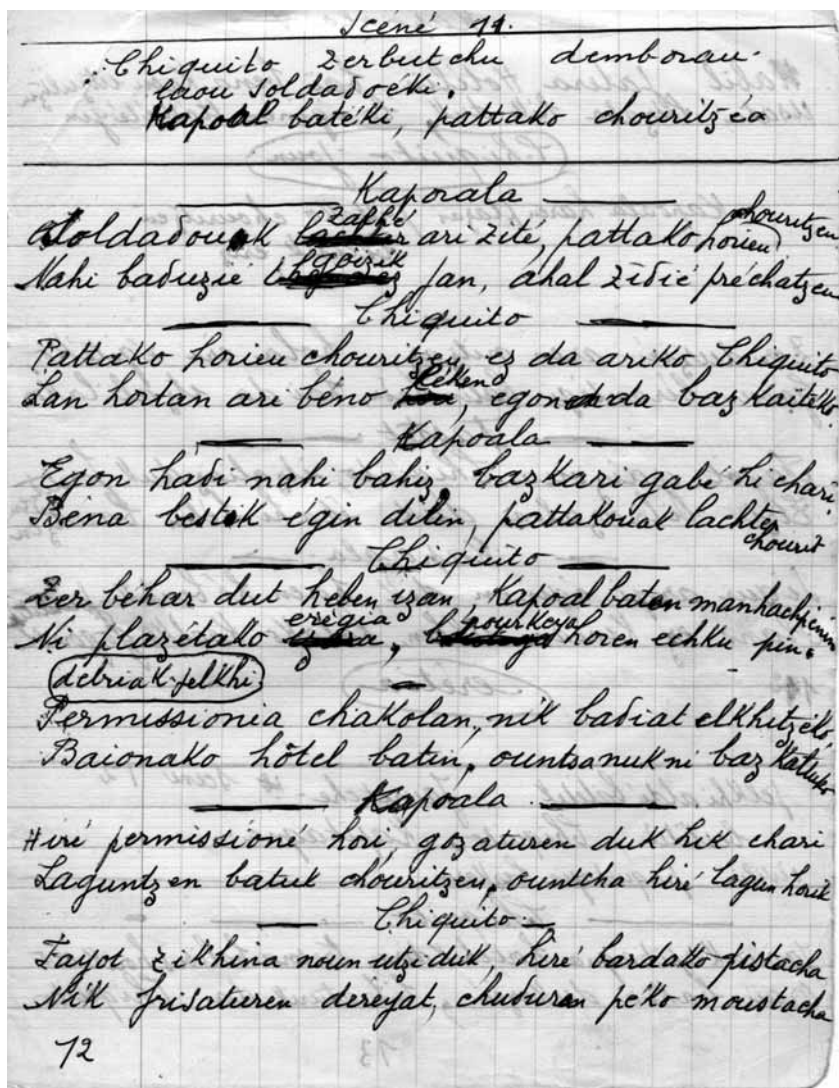 Scéné 11.
Chiquito zerbutchu demborau.
laou soldadoéki.
Kapoal batéki, pattako chouritzéa
Kaporala
Soldadouak zalhé ari zité, pattako horien chouritzen
Nahi baduzié goizik jan, ahal zidié préchatzen
Chiquito
Pattako horien chouritzen, ez da ariko Chiquito
Lan hortan ari béno lékeno, egonen da bazkaitéko.
Kapoala
Egon hadi nahi bahiz, bazkari gabé hi chari
Bena bestik égin dilin, pattakouak lachter chourit
Chiquito
Zer béhar dut heben izan, Kapoal baten manhachpenin
Ni plazétako eregia, pourkeya horen echku pin.
débriak-jelkhi
Permissionia chakolan, nik badiat elkhitzéko
Baionako hôtel batin, ountsa nuk ni bazkatuko
Kapoala
Hiré permissioné hori, gozaturen duk hik chari
Laguntzen batuk chouritzen, ountcha hiré lagun horik
Chiquito
Fayot zikhina noun utzi duk, hiré bardako pistacha
Nik frisaturen dereyat, chuduran péko moustacha
12